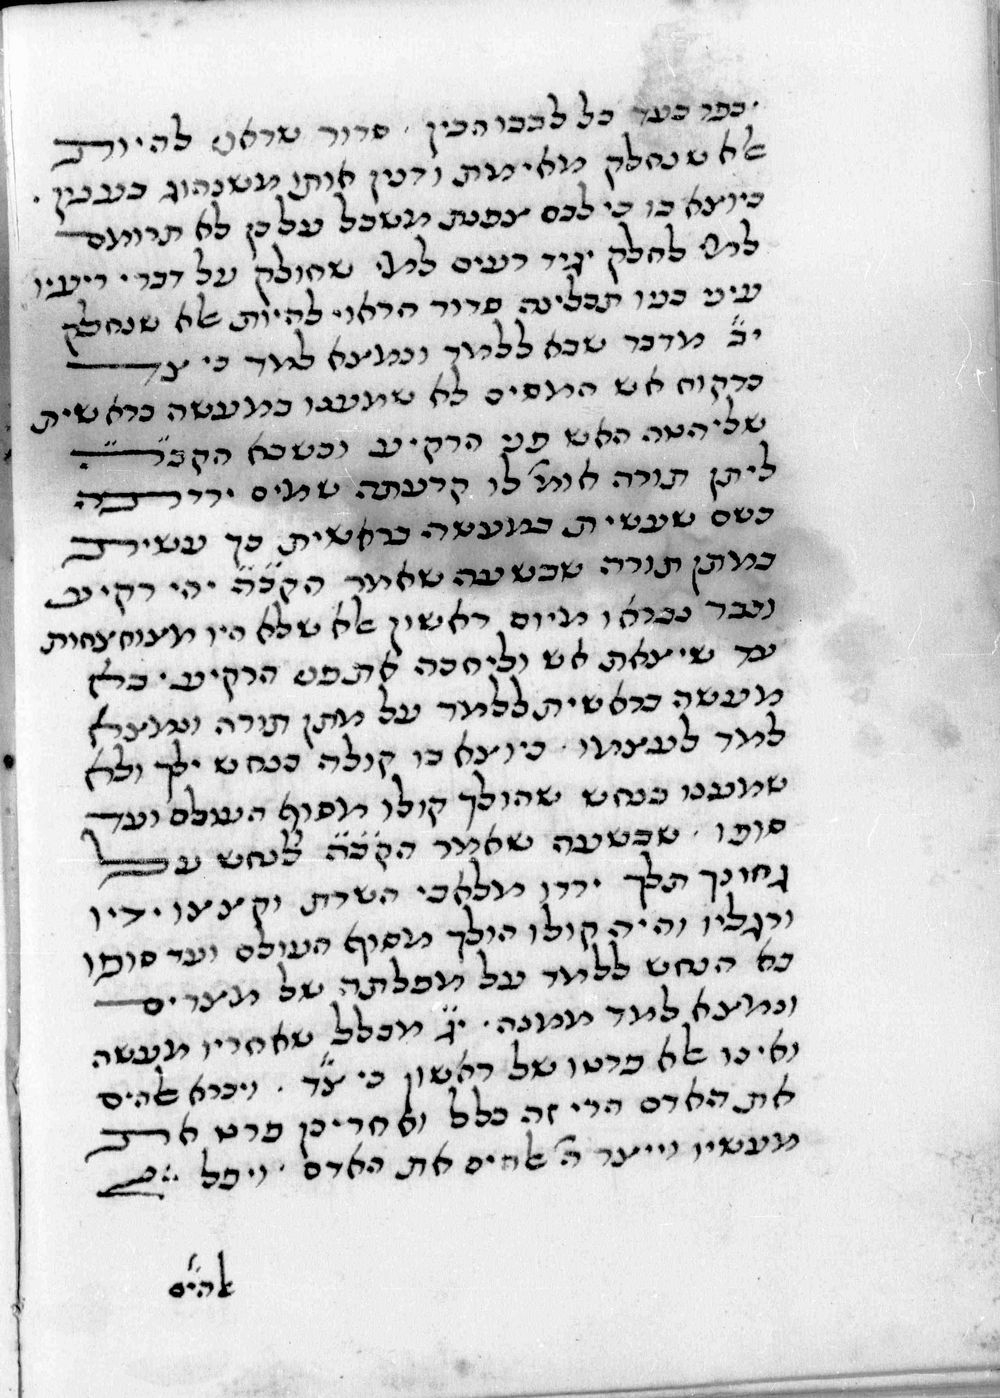 יכפר בעד כל לבבו הכין . סדור שראוי להיות
אלא שנחלק מאימת ודנין אותו משנהוג כעניין .
כיוצא בו כי לבם צפנת משכל על כן לא תרומם
למי לחלק יגיד רעים למי שחולק על דברי ריעיו
עיני בניו תכלינה סדור הראוי להיות אלא שנחלק
י״ב מדבר שבא ללמד ונמצא למד כי צד
כקדוח אש המסים לא שמענו במעשה בראשית
שליהטה האש פני הרקיע וכשבא הקב״ה
ליתן תורה אומ׳ לו קרעתה שמים ירדתה
כשם שעשית במעשה בראשית כך עשית
במתן תורה שבשעה שאמר הקב״ה יהי רקיע
וכבר נבראו מיום ראשון אלא שלא היו מצוחצחות
עד שיצאת אש וליחכה את פני הרקיע . בא
מעשה בראשית ללמד על מתן תורה ונמצא
למד לעצמו . כיוצא בו קולה כנחש ילך ולא
שמענו בנחש שהולך קולו מסוף העולם ועד
סופו . שבשעה שאמר הקב״ה לנחש על
גחונך תלך ירדו מלאכי השרת וקצצו ידיו
ורגליו והיה קולו הולך מסוף העולם ועד סופו
בא הנחש ללמד על מפלתה של מצרים
ונמצא למד ממנה . י״ג מכלל שאחריו מעשה
ואינו אלא פרטו של ראשון כי צ״ד . ויברא אלהים
את האדם הרי זה כלל ואחריכן פרט את
מעשיו וייצר ה׳ אלהים את האדם . ויפל ה׳
אלהים